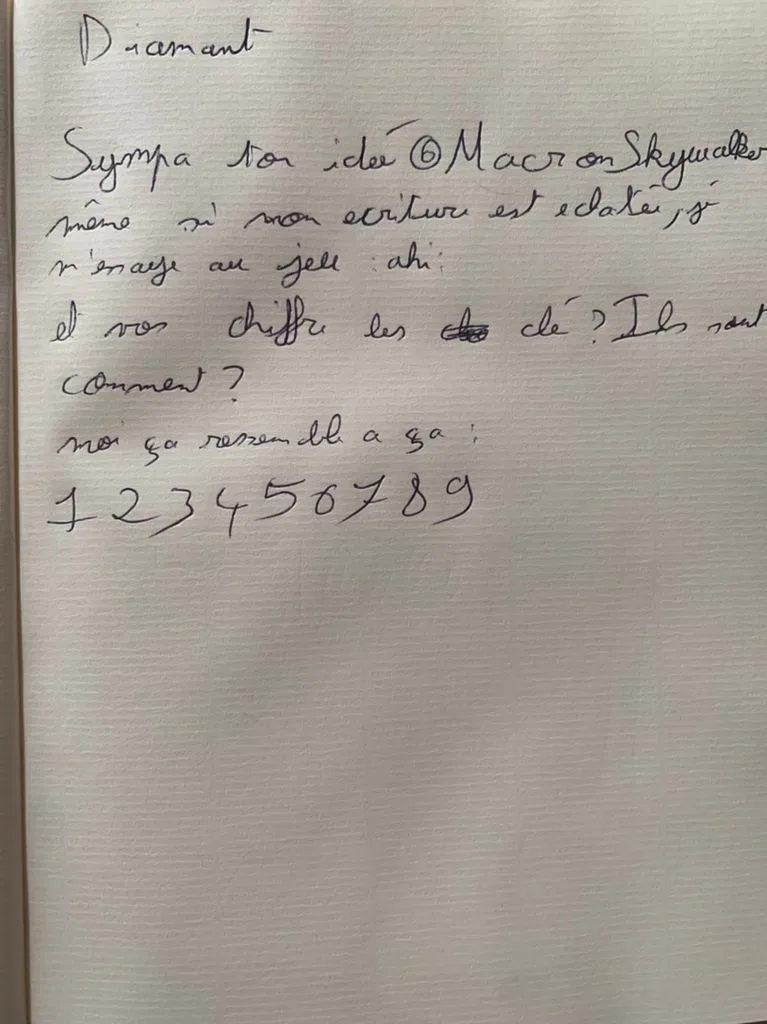 Diamant
Sympa ton idée @MacronSkywalker
même si mon ecriture est eclaté, j'
m'essaye au jeu :ahi:
et vos chiffre les clé ? Ils sont
comment ?
moi ça ressemble a ça :
1 2 3 4 5 6 7 8 9